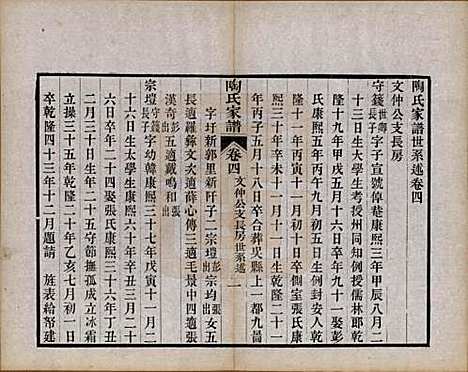 陶氏家譜世系述卷四
文仲公支長房
守錢世卿長子字子宣號倬菴康熙三年甲辰八月二
十一日生太學生考授州同知例授儒林郎乾
隆十九年甲戌五月十六日卒配九十一娶彭
氏康熙五年丙午四月八日生例封安人乾
隆十一年丙寅十一月初六日卒側室張氏康
熙三十年辛未十一月十一日生乾隆二十一
年丙子五月十八日卒合葬吳縣上一都九啚
陶氏家譜 卷四 文仲公支長房世系述 一
字圩新郭里新阡子二宗壇彭出宗均張出女五
長適羅彝文次適薛心傳三適毛景中四適
漢奇彭出五適戴鳴和張出
宗壇守錢長子字幼韓康熙三十七年戊寅十一月二
十六日生太學生康熙六十年辛丑三月二十
六日卒年二十四娶張氏康熙三十六年丁丑
二月三十日生二十五守節撫孤成立冰霜
立操三十五年乾隆二十年乙亥七月初一日
卒乾隆四十三年十二月題請 旌表給帑建